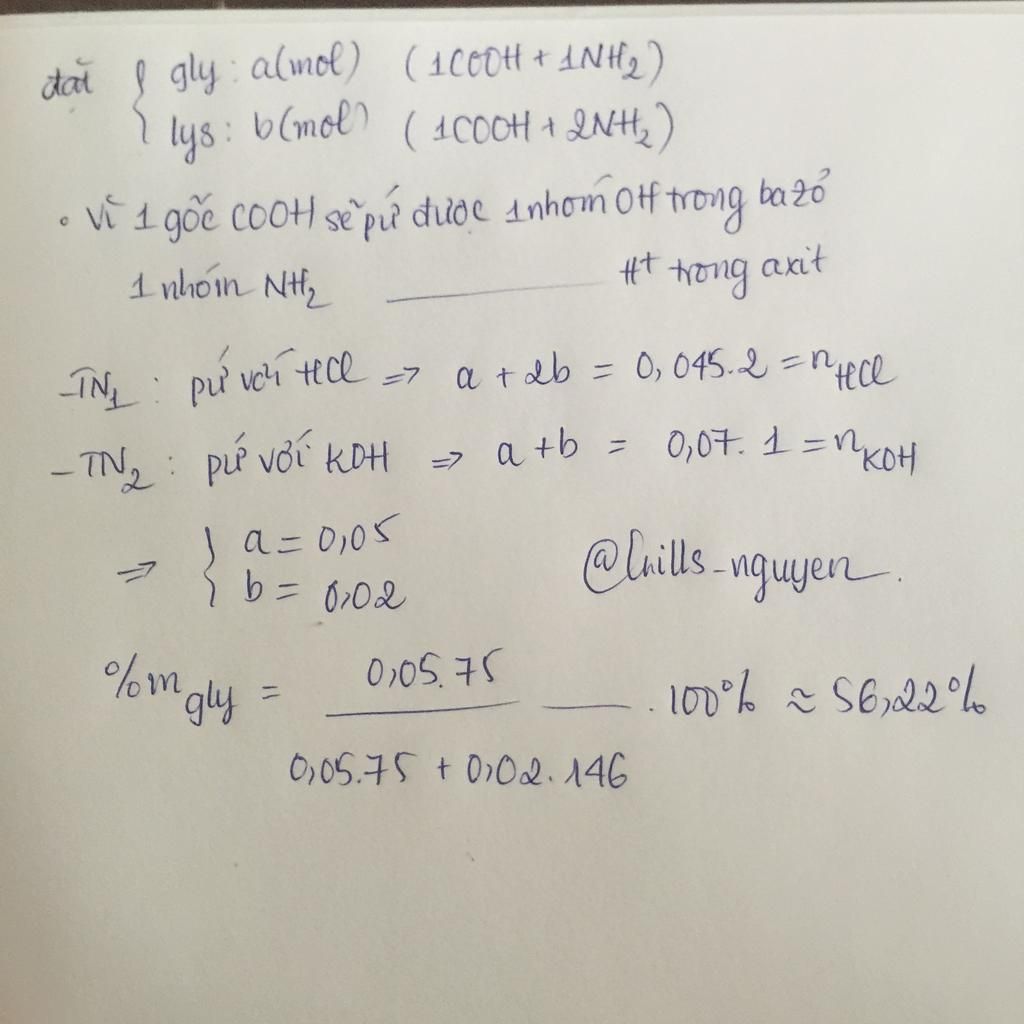 đặt { gly: a(mol) (1COOH + 1NH₂)
lys: b(mol) (1COOH + 2NH₂)
• Vì 1 gốc COOH sẽ pứ được 1 nhóm OH trong bazơ
1 nhóm NH₂ ______ H⁺ trong axit
- TN₁ : pứ với HCl => a + 2b = 0,045.2 = nHCl
- TN₂ : pứ với KOH => a + b = 0,07. 1 = nKOH
=> { a = 0,05
b = 0,02
@Chills_nguyen.
%m gly = 0,05.75 / 0,05.75 + 0,02.146 . 100% ≈ 56,22%